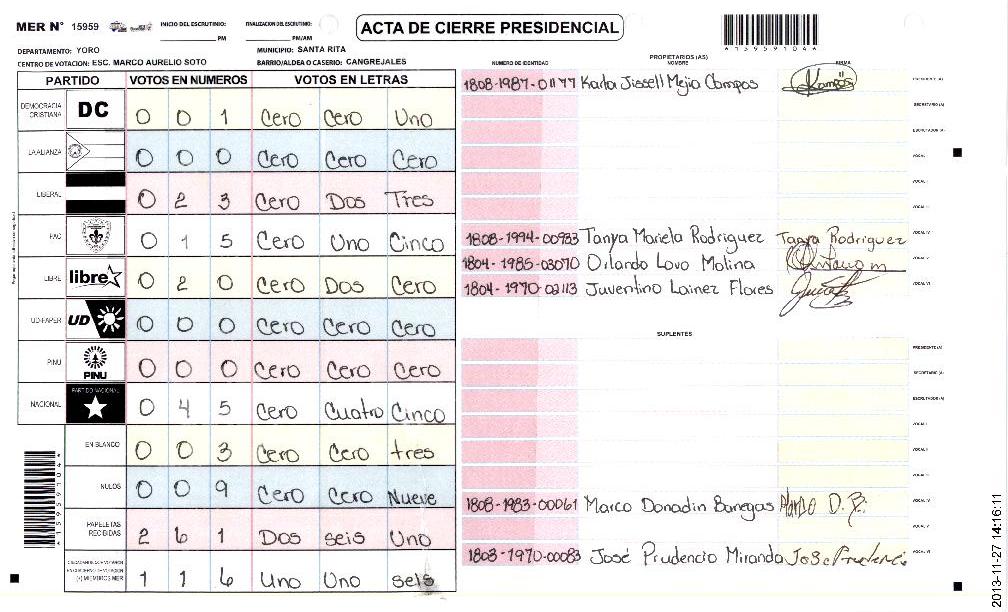 MER N° 15959 INICIO DEL ESCRUTINIO: PM FINALIZACION DEL ESCRUTINIO: PM/AM
ACTA DE CIERRE PRESIDENCIAL
*1595910 4*
DEPARTAMENTO: YORO MUNICIPIO: SANTA RITA
CENTRO DE VOTACION: ESC. MARCO AURELIO SOTO BARRIO/ALDEA O CASERIO: CANGREJALES
PARTIDO VOTOS EN NUMEROS VOTOS EN LETRAS
DEMOCRACIA CRISTIANA DC 0 0 1 Cero Cero Uno
LA ALIANZA 0 0 0 Cero Cero Cero
LIBERAL 0 2 3 Cero Dos Tres
PAC 0 1 5 Cero Uno Cinco
LIBRE libre 0 2 0 Cero Dos Cero
UD-FAPER UD 0 0 0 Cero Cero Cero
PINU PINU 0 0 0 Cero Cero Cero
NACIONAL PARTIDO NACIONAL 0 4 5 Cero Cuatro Cinco
EN BLANCO 0 0 3 Cero Cero tres
NULOS 0 0 9 Cero Cero Nueve
PAPELETAS RECIBIDAS 2 6 1 Dos seis Uno
1 1 6 Uno Uno seis
PROPIETARIOS (AS)
NUMERO DE IDENTIDAD NOMBRE FIRMA
1808-1987-01177 Karla Jissell Mejia Campos PRESIDENTE (A)
SECRETARIO (A)
ESCRUTADOR (A)
VOCAL I
VOCAL II
VOCAL III
1808-1994-00933 Tanya Mariela Rodriguez Tanya Rodriguez VOCAL IV
1804-1985-03070 Orlando Lovo Molina VOCAL V
1804-1970-02113 Juventino Lainez Flores VOCAL VI
SUPLENTES
PRESIDENTE (A)
SECRETARIO (A)
ESCRUTADOR (A)
VOCAL I
VOCAL II
VOCAL III
1808-1983-00061 Marco Donadin Banegas VOCAL IV
VOCAL V
1808-1970-00083 José Prudencio Miranda VOCAL VI
2013-11-27 14:16:11